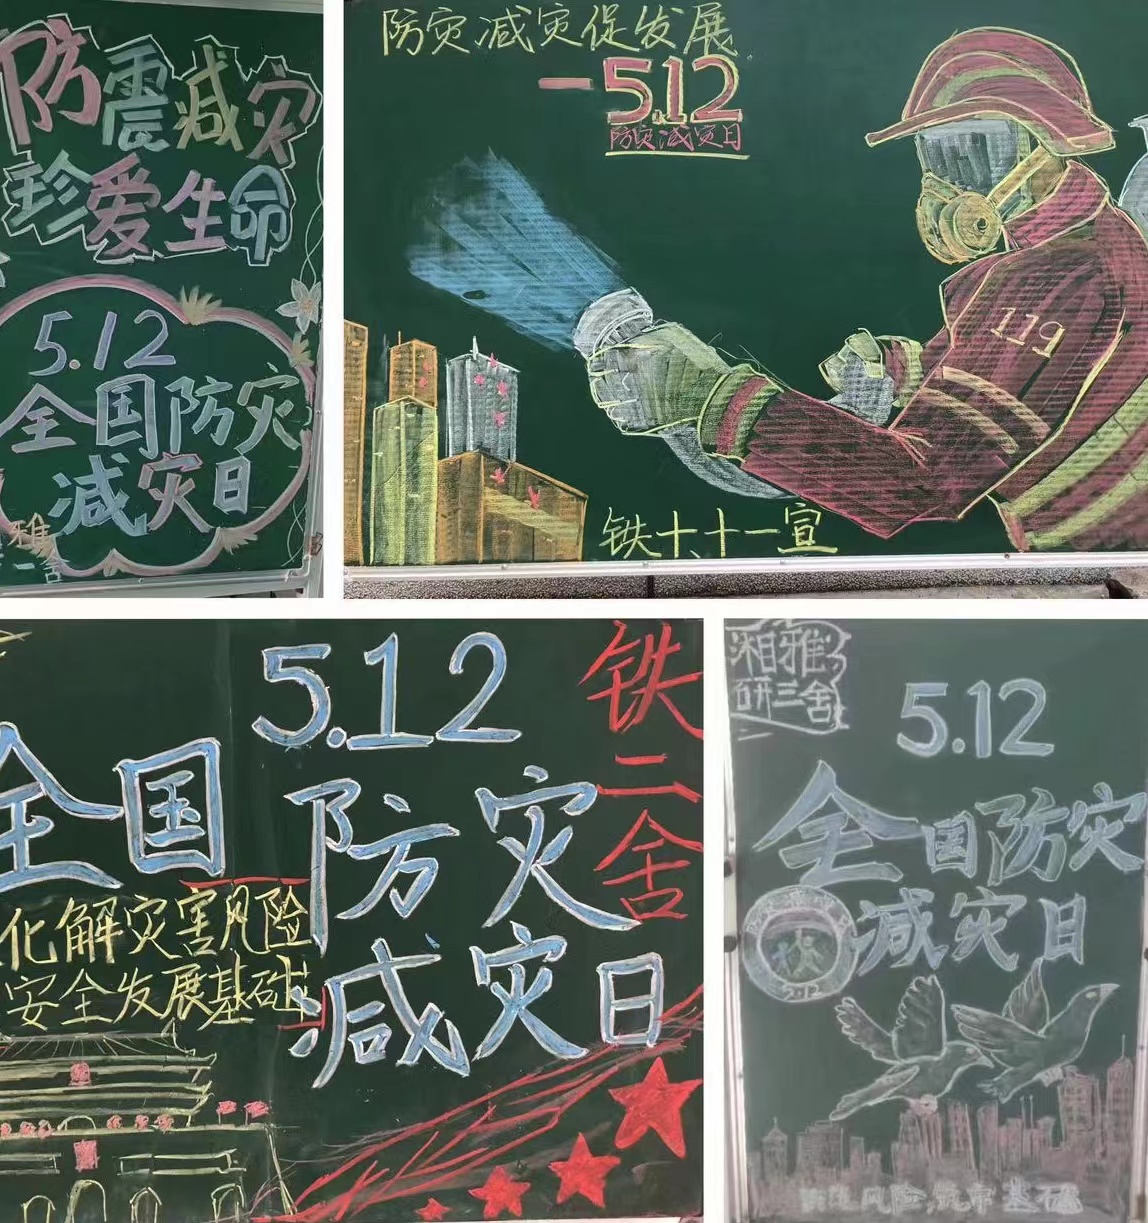 防震减灾
珍爱生命
5.12
全国防灾
减灾日
雅
一舍
防灾减灾促发展
一5.12
防灾减灾日
119
铁十、十一宣
5.12
全国防灾
减灾日
铁二舍
化解灾害风险
安全发展基础
湘雅
研三舍
5.12
全国防灾
减灾日
2012
风险,筑牢基础